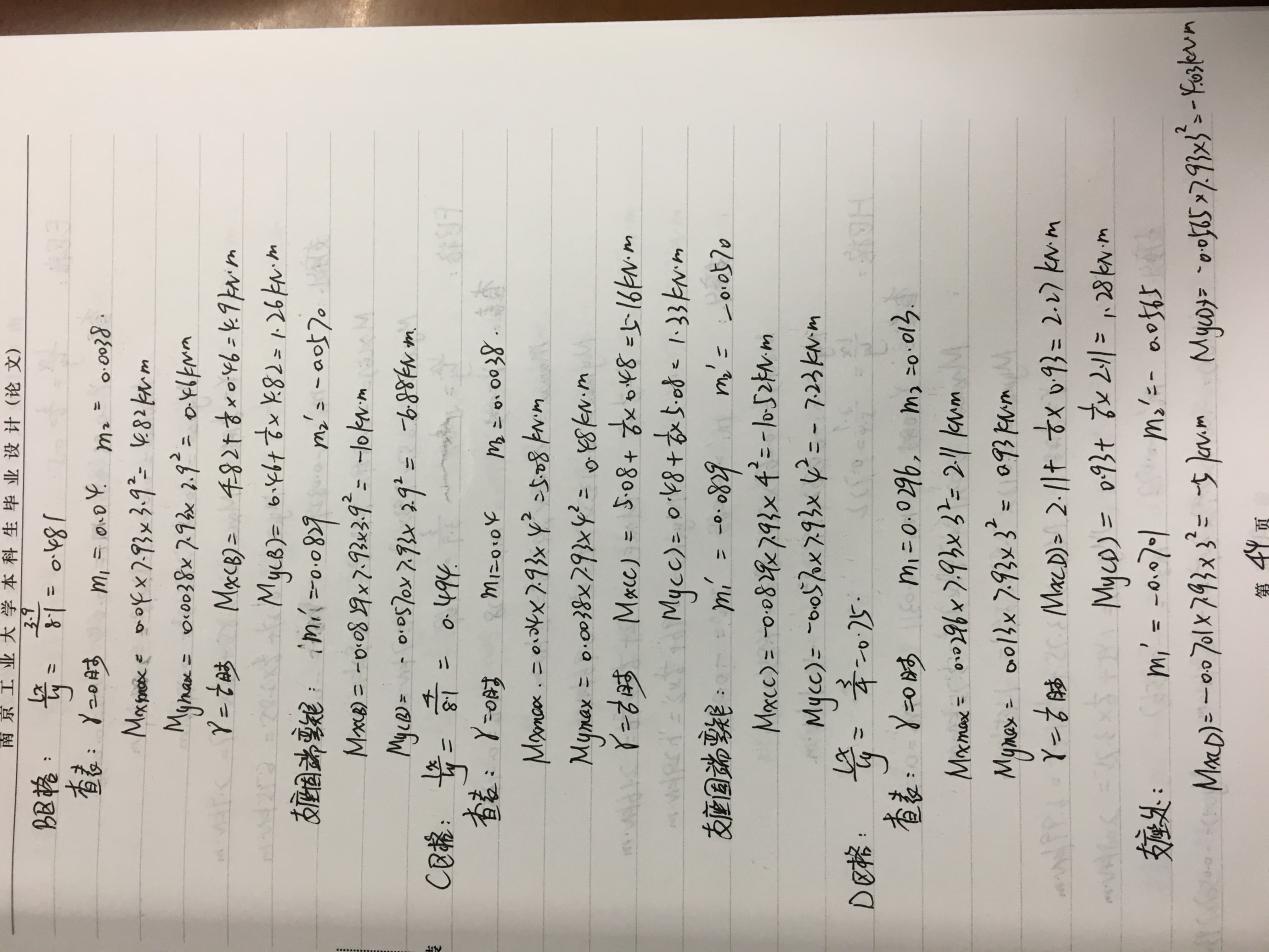 南京工业大学本科生毕业设计(论文)
B区格: lx/ly = 3.9/8.1 = 0.481
查表: γ=0时 m₁=0.04. m₂=0.0038.
Mxmax = 0.04×7.93×3.9²= 4.82kN·m
Mymax = 0.0038×7.93×3.9²= 0.46kN·m
γ=1/6时 Mx(B)= 4.82+1/6×0.46=4.9kN·m
My(B)= 0.46+1/6×4.82=1.26kN·m
支座固端弯矩: m₁'=-0.0829 m₂'=-0.0570
Mx(B)=-0.0829×7.93×3.9²=-10kN·m
My(B)=-0.0570×7.93×3.9²= -6.88kN·m.
C区格: lx/ly = 4/8.1 = 0.494.
查表: γ=0时 m₁=0.04 m₂=0.0038.
Mxmax.=0.04×7.93×4²=5.08kN·m
Mymax=0.0038×7.93×4²= 0.48kN·m.
γ=1/6时 Mx(C)= 5.08+1/6×0.48=5.16kN·m
My(C)=0.48+1/6×5.08=1.33kN·m
支座固端弯矩: m₁'=-0.0829 m₂'= -0.0570
Mx(C)=-0.0829×7.93×4²=-10.52kN·m
My(C)= -0.0570×7.93×4²=-7.23kN·m
D区格: lx/ly = 3/4=0.75.
查表: γ=0时 m₁=0.0296, m₂=0.013.
Mxmax= 0.0296×7.93×3²=2.11kN·m
Mymax= 0.013×7.93×3²= 0.93kN·m
γ=1/6时 Mx(D)=2.11+1/6×0.93=2.27kN·m
My(D)= 0.93+1/6×2.11=1.28kN·m
支座处: m₁'=-0.0701 m₂'=-0.0565
Mx(D)=-0.0701×7.93×3²=-5kN·m My(D)=-0.0565×7.93×3²=-4.03kN·m
第 44 页